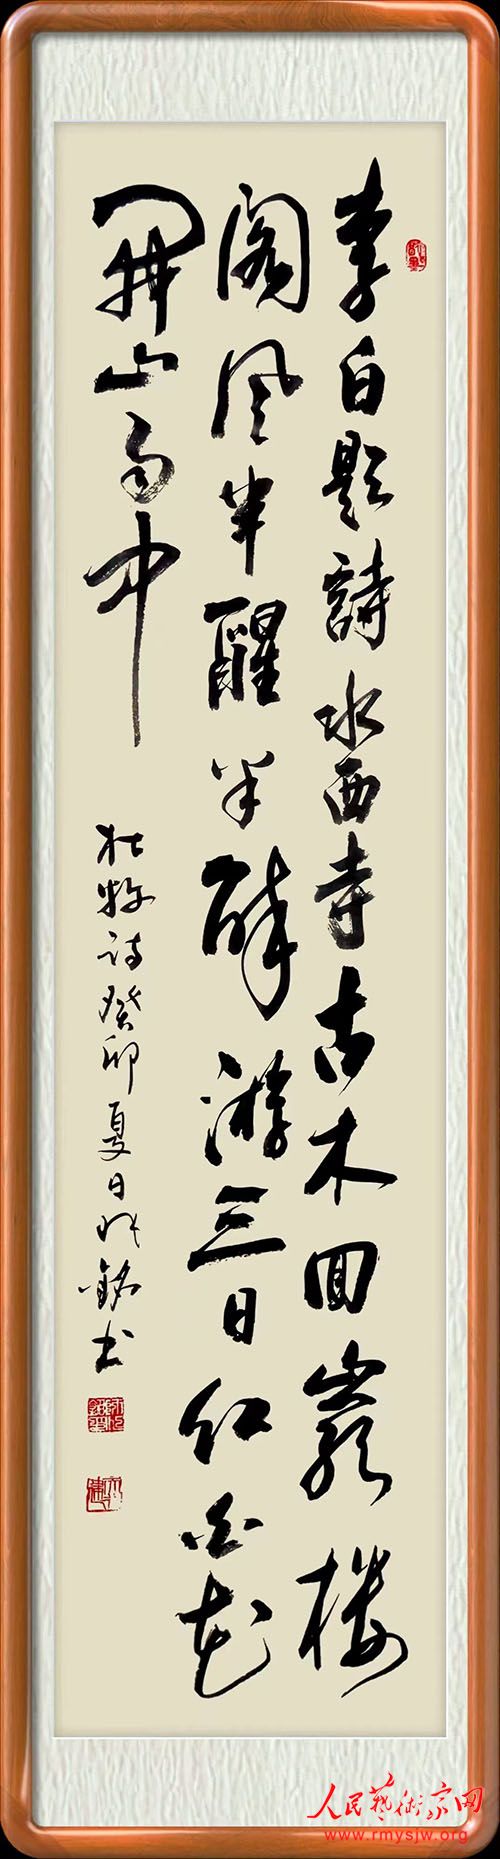 李白題詩水西寺古木回巖楼
阁風半醒半醉游三日红白花
開山雨中
杜牧诗癸卯夏日銘书
人民藝術家网
www.rmysjw.org